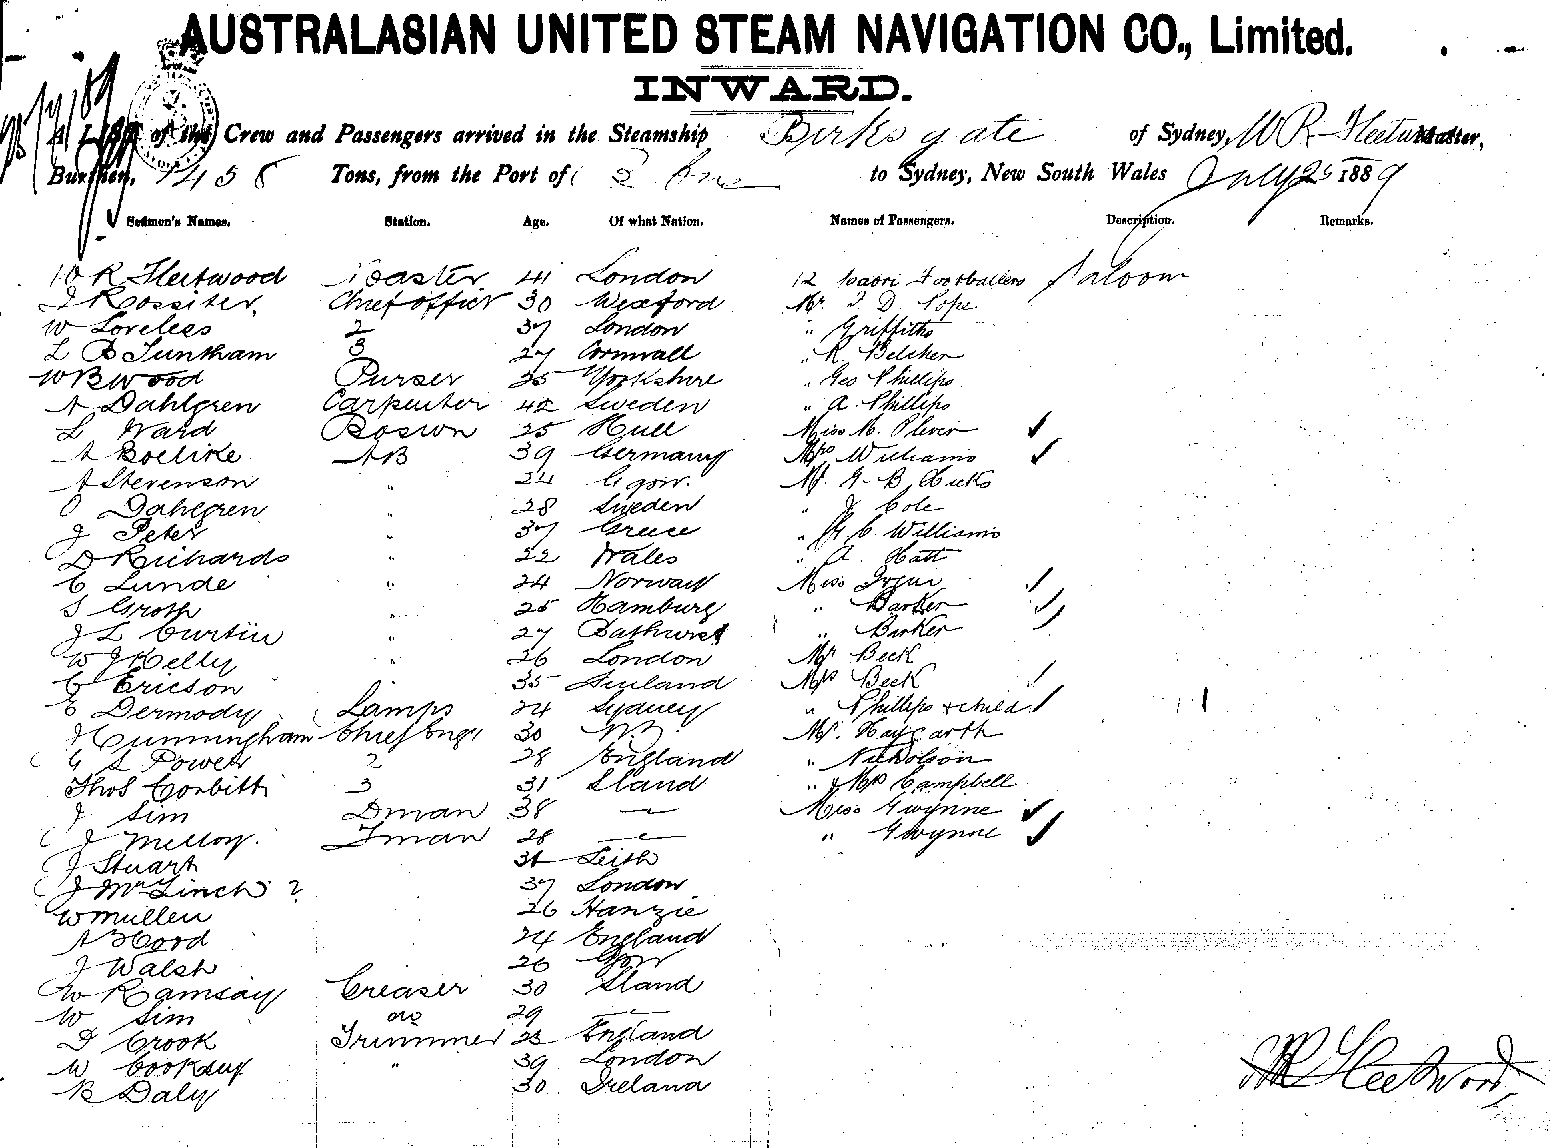 AUSTRALASIAN UNITED STEAM NAVIGATION CO., Limited.
INWARD.
A List of the Crew and Passengers arrived in the Steamship Birksgate of Sydney, W R Fleetwood Master,
Burthen, 1458 Tons, from the Port of to Sydney, New South Wales July 25 1889
Seamen's Names. Station. Age. Of what Nation. Names of Passengers. Description. Remarks.
W R Fleetwood Master 41 London 12 Maori Footballers Saloon
J Rossiter Chief officer 30 Wexford Mr J D Pope
W Loveless 2 37 London " Griffiths
L B Tunkham 3 27 Cornwall " R Belcher
W B Wood Purser 35 Yorkshire " Geo Phillips
A Dahlgren Carpenter 42 Sweden " A Phillips
L Ward Bosun 25 Hull Miss M. Plever
A Boelike AB 39 Germany Mrs Williams
A Stevenson " 24 Mr G B Hicks
O Dahlgren " 28 Sweden " J Cole
J Peter " 37 Greece " C Williams
D Richards " 22 Wales " A Hatt
C Lunde " 24 Norway Miss
S Groth " 25 Hamburg " Barker
J L Curtin " 27 Bathurst " Barker
W J Kelly " 26 London Mr Beck
C Ericson 35 Finland Mrs Beck
E Dermody Lamps 24 Sydney " Phillips & child
J Cunningham Chief Engr 30 N.B. Mr. Haygarth
G S Power 2 28 England " Nicholson
Thos Corbitt 3 31 Sland " & Mrs Campbell
J Sim Dman 38 Miss Gwynne
J Melloy Fman 28 " Gwynne
J Stuart 31 Leith
J McLinch ? 37 London
W Mullen 26
A Hood 24 England
J Walsh 26
W Ramsay Greaser 30 Sland
W Sim do 29
D Crook Trimmer 23 England
W Cooksuy " 39 London
B Daly 30 Ireland
W R Fleetwood